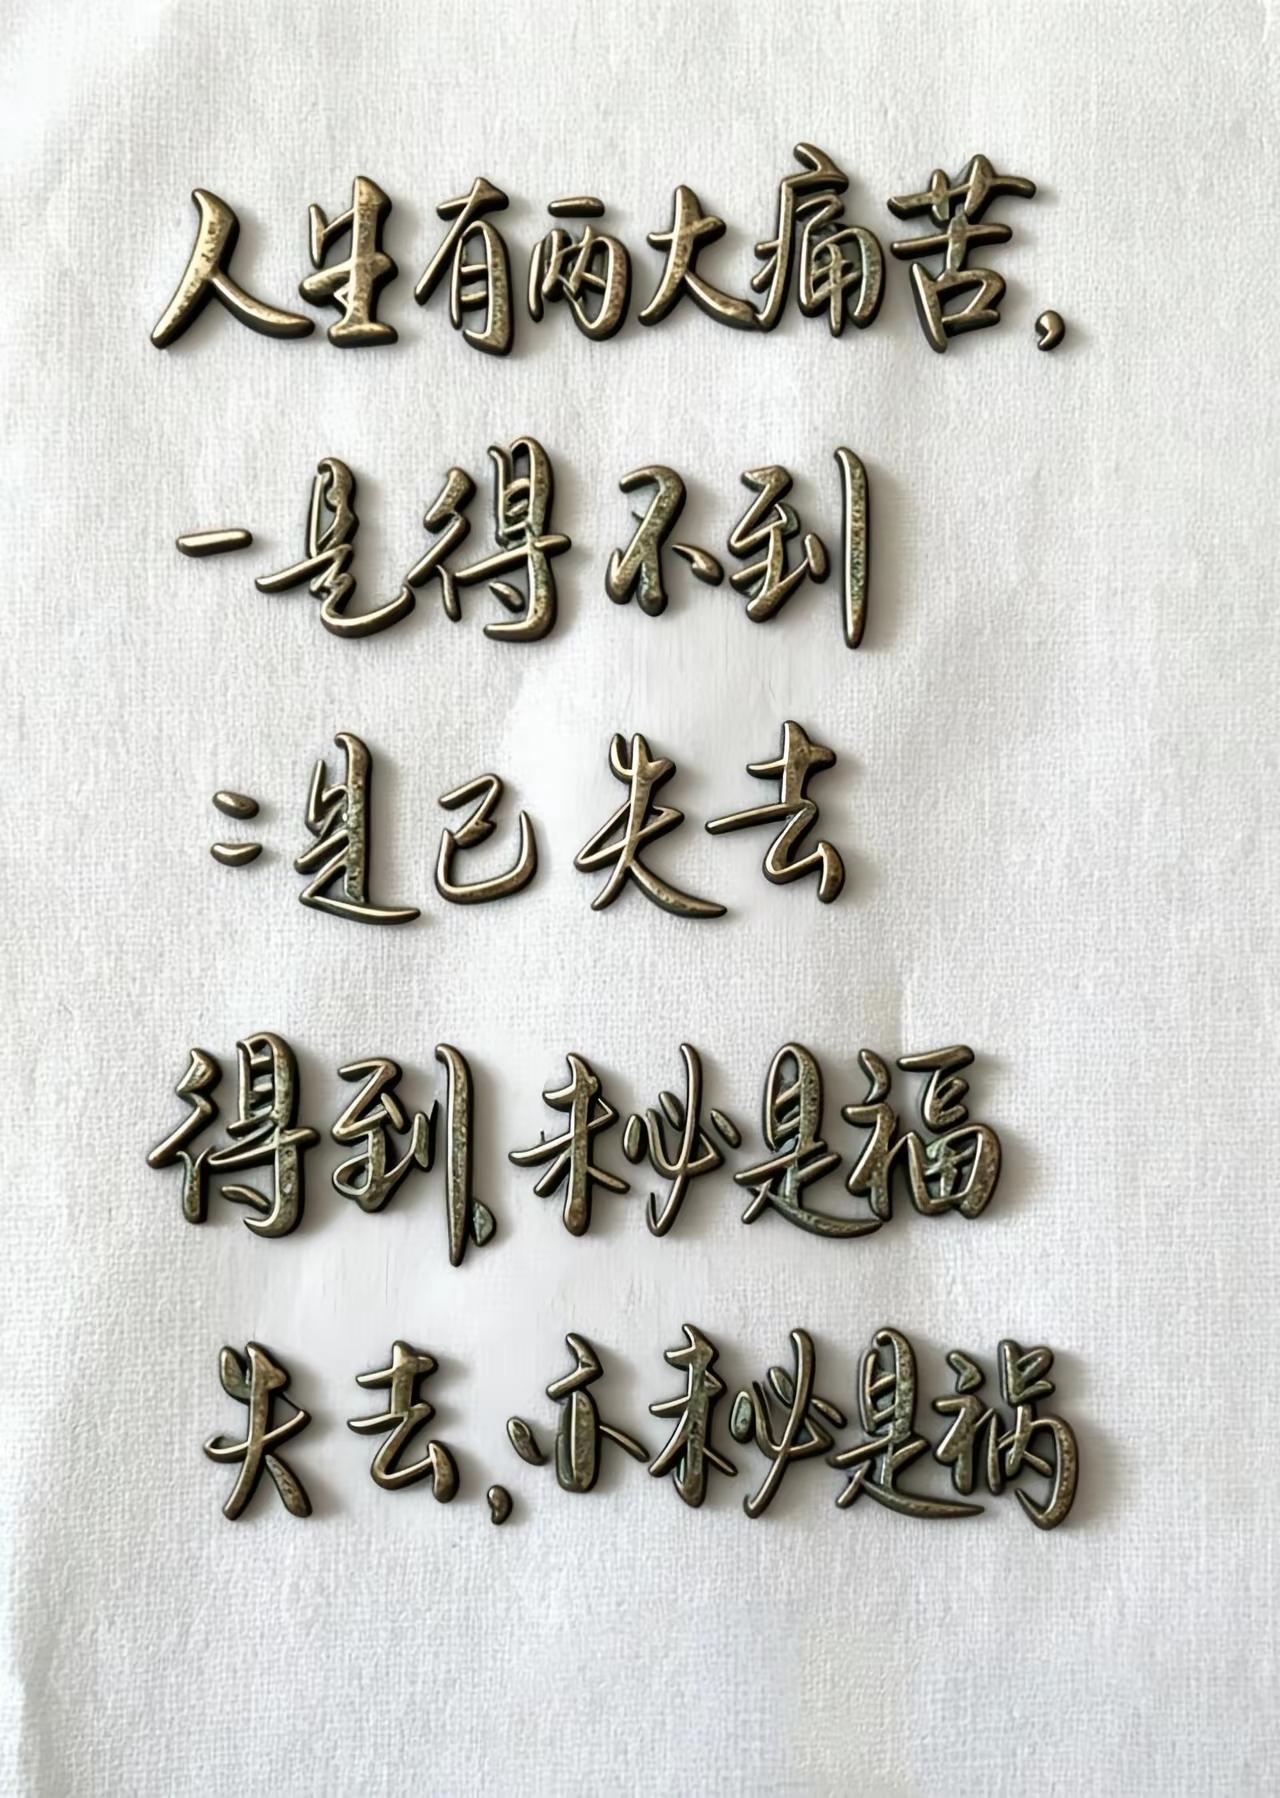 人生有两大痛苦，
一是得不到
二是已失去
得到，未必是福
失去，亦未必是祸